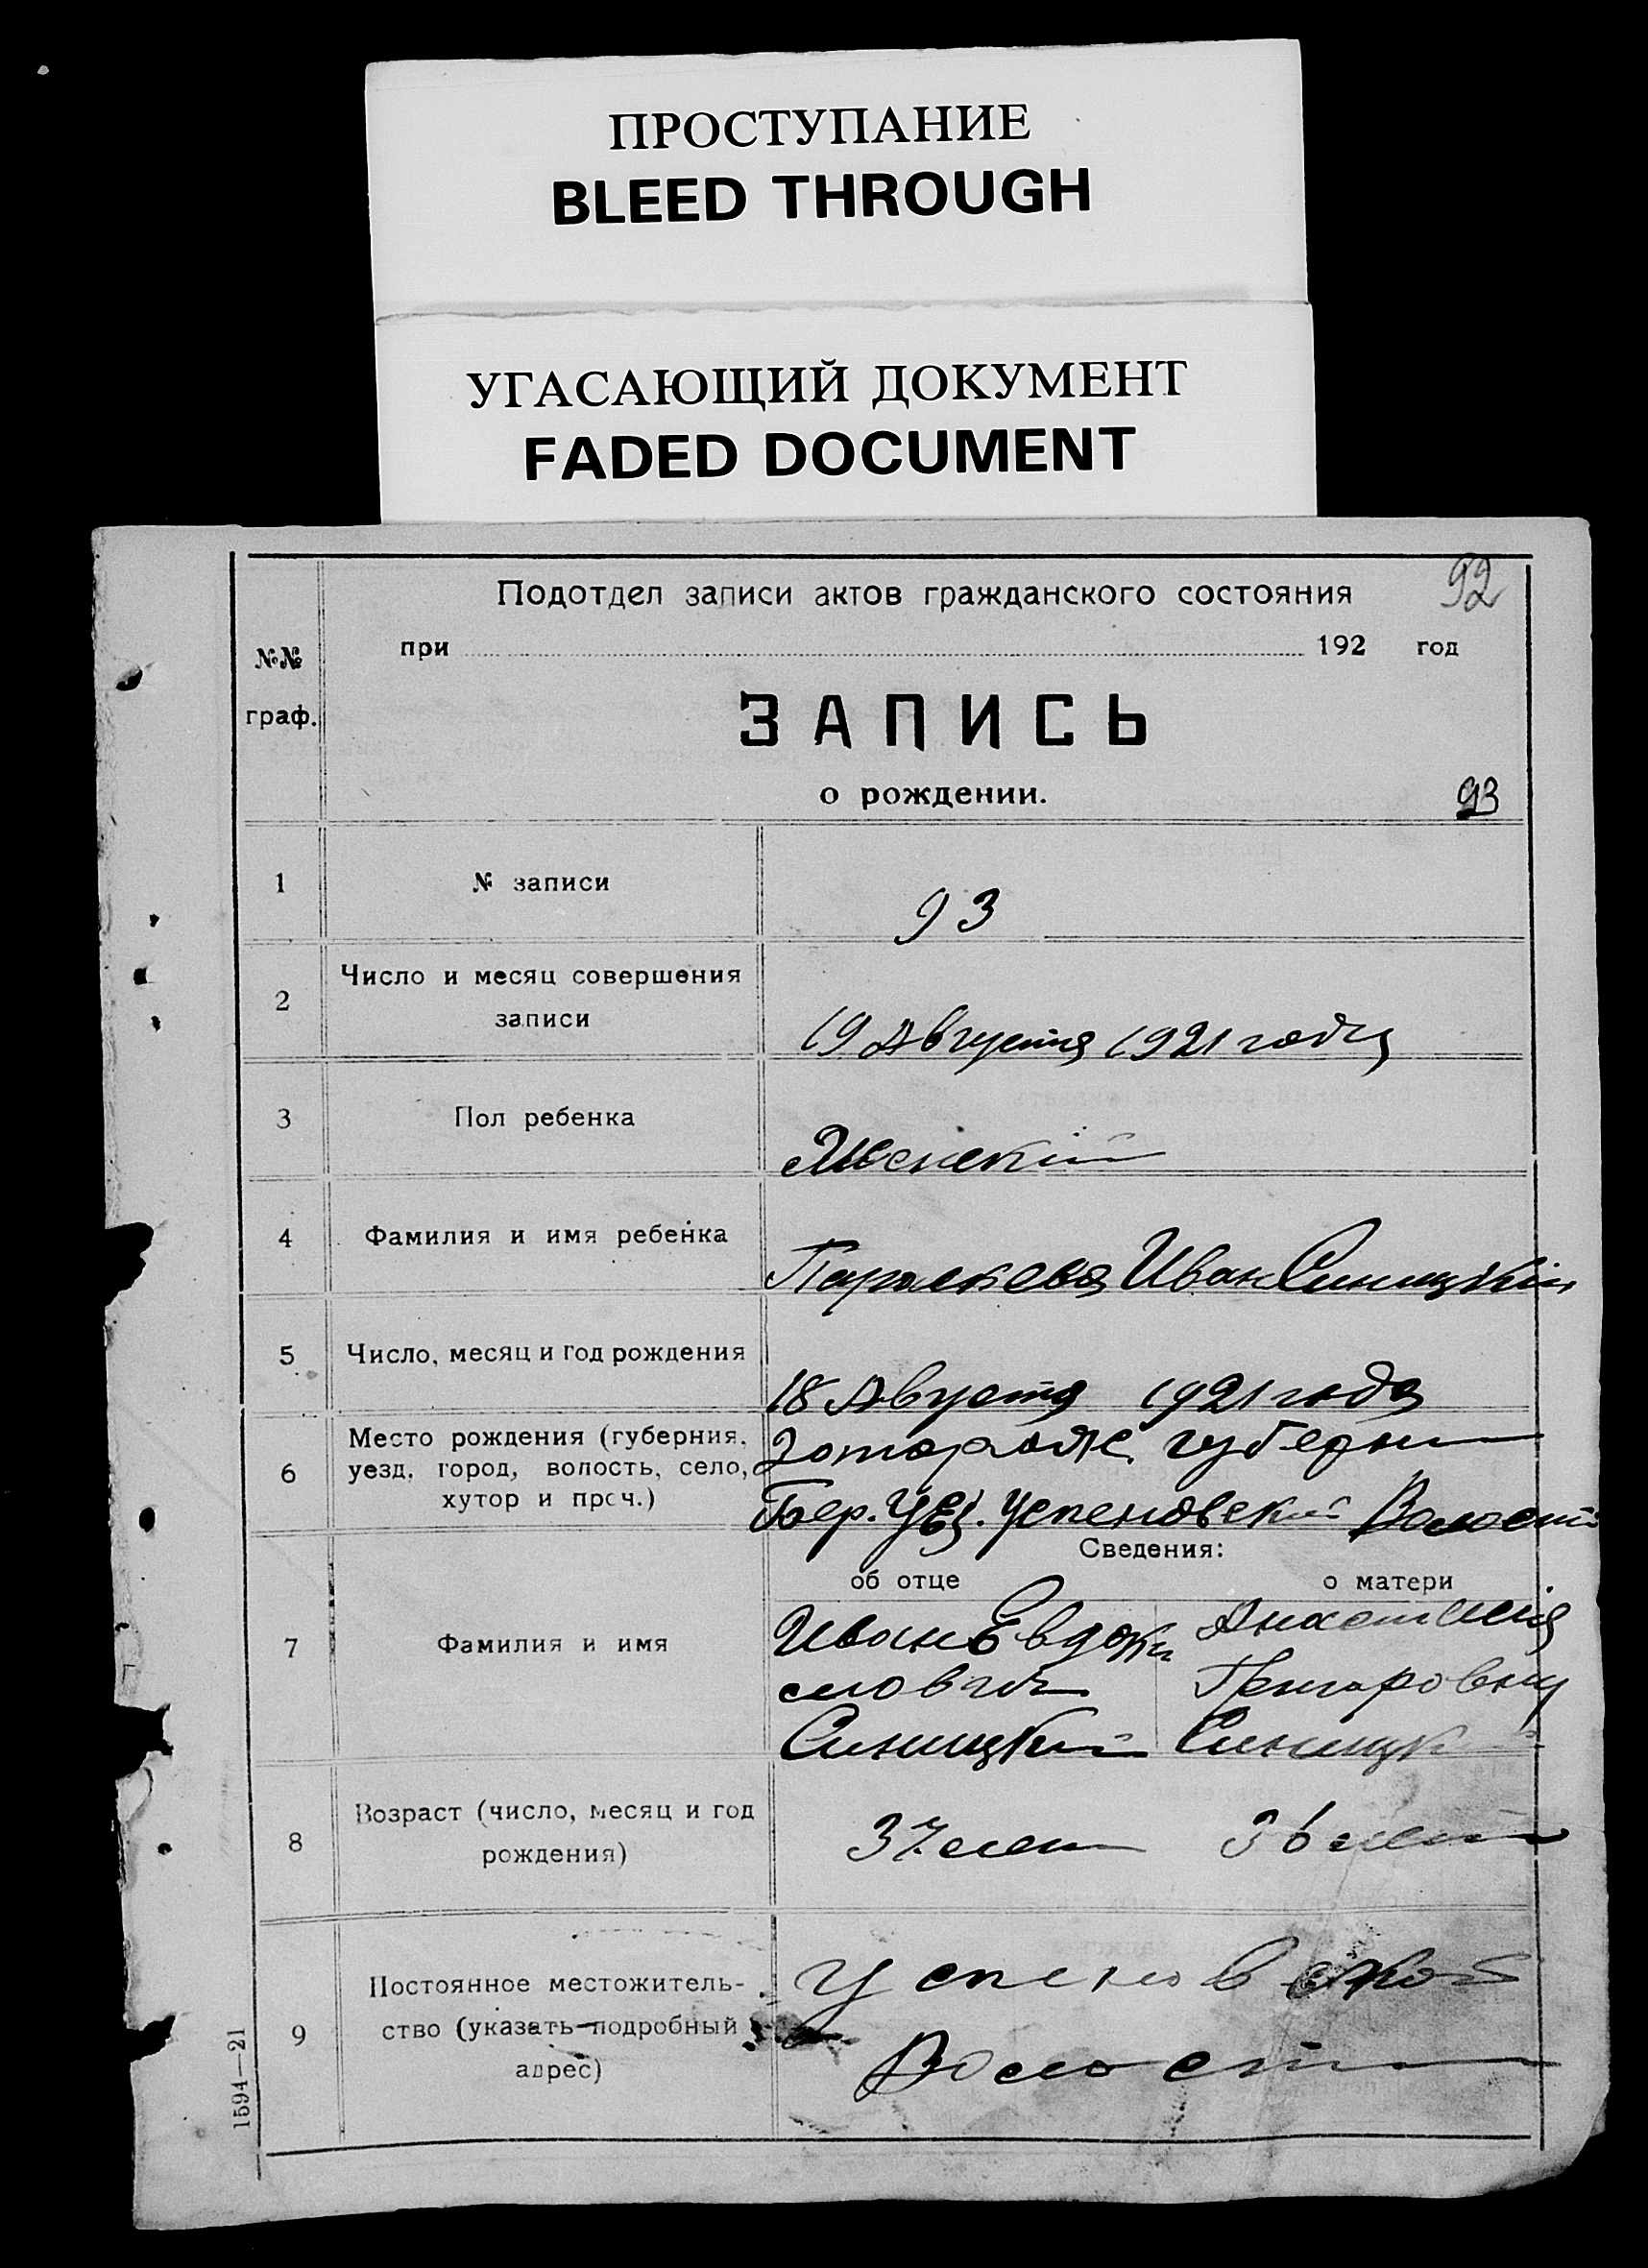 ПРОСТУПАНИЕ
BLEED THROUGH
УГАСАЮЩИЙ ДОКУМЕНТ
FADED DOCUMENT
92
Подотдел записи актов гражданского состояния
при 192 год
№№
граф.
ЗАПИСЬ
о рождении.
93
1 № записи
93
2 Число и месяц совершения
записи
19 Августа 1921 года
3 Пол ребенка
Женский
4 Фамилия и имя ребенка
Параскева Иван Синицкий
5 Число, месяц и год рождения
18 Августа 1921 года
6 Место рождения (губерния,
уезд, город, волость, село,
хутор и проч.)
губерни
Бер. Уез. Успеновский Волости
Сведения:
об отце о матери
7 Фамилия и имя
Иван Евдоки
мович
Синицкий
Анастасия
Григоровна
Синицк
8 Возраст (число, месяц и год
рождения)
37 лет 36 лет
9 Постоянное местожитель-
ство (указать подробный
адрес)
Успеновской
Волости
1594—21